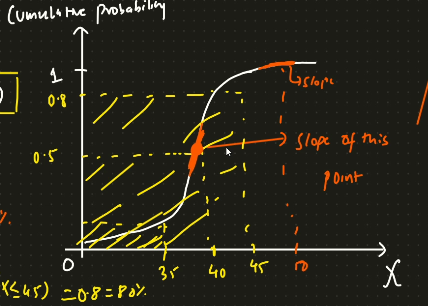 Cumulative probability
1
0.8
slope
0.5
slope of this
point
%
0
35 40 45 50
X
(x≤45) = 0.8 = 80%